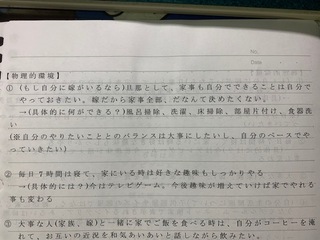 No.
Date
【物理的環境】
①(もし自分に嫁がいるなら)旦那として、家事も自分でできることは自分で
やっておきたい。嫁だから家事全部、だなんて決めたくない。
→(具体的に何ができる?)風呂掃除、洗濯、床掃除、部屋片付け、食器洗
い
(※自分のやりたいこととのバランスは大事にしたいし、自分のペースでや
っていきたい)
② 毎日7時間は寝て、家にいる時は好きな趣味もしっかりやる
→(具体的には?)今はテレビゲーム。今後趣味が増えていけば家でやれる
事も変わる
③ 大事な人(家族、嫁)と一緒に家でご飯を食べる時は、自分がコーヒーを淹
れて、お互いの近況を和気あいあいと話しながら飲みたい。